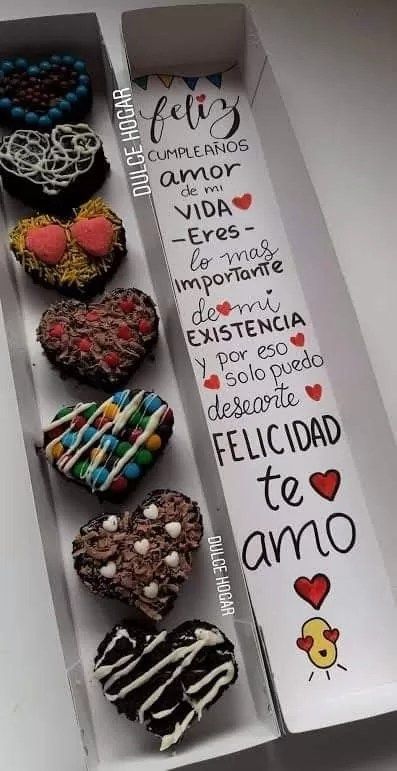 feliz
CUMPLEAÑOS
amor
de mi
VIDA
-Eres-
lo mas
IMPORTANTE
de mi
EXISTENCIA
y por eso
solo puedo
desearte
FELICIDAD
te
amo
DULCE HOGAR
DULCE HOGAR